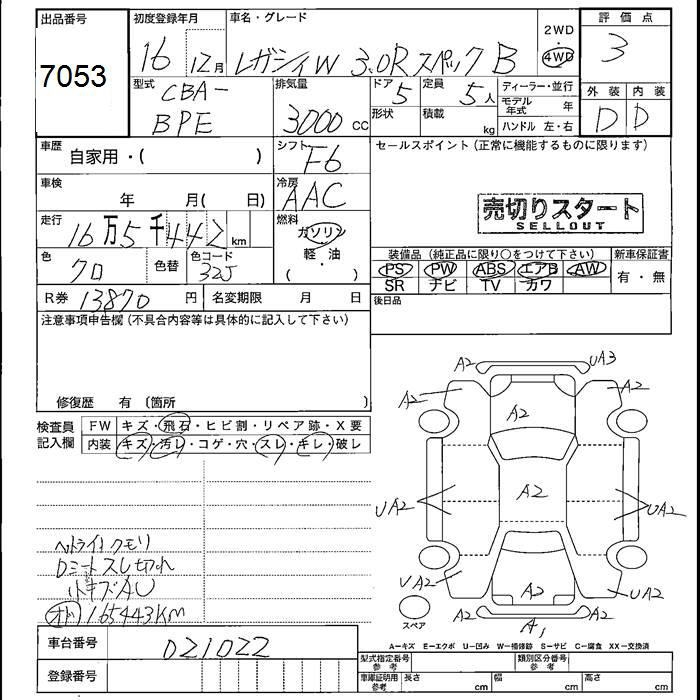 出品番号
7053
初度登録年月
16 12月
車名・グレード
レガシィW 3.0R スペックB
2WD
・
4WD
評価点
3
外装 内装
D D
型式
CBA-
BPE
排気量
3000 cc
ドア 5
形状
定員 5人
積載 kg
ディーラー・並行
モデル年式 年
ハンドル 左・右
車歴
自家用・( )
シフト
F6
セールスポイント(正常に機能するものに限ります)
売切りスタート
SELLOUT
車検
年 月( 日)
冷房
AAC
走行
16万5千442km
燃料
ガソリン
・
軽・油
( ・ )
色
クロ
色替
色コード
32J
装備品(純正品に限り○をつけて下さい)
新車保証書
PS PW ABS エアB AW
SR ナビ TV カワ
有・無
R券 13870円
名変期限 月 日
後日品
注意事項申告欄(不具合内容等は具体的に記入して下さい)
修復歴 有(箇所 )
検査員
記入欄
FW キズ・飛石・ヒビ割・リペア跡・X要
内装 キズ・汚レ・コゲ・穴・スレ・キレ・破レ
ヘッドライトクモリ
Dシートスレ切れ
小キズAU
オド165443KM
A2 UA3
A2 A2 A2
UA2 A2 UA2
UA2 A2 UA2
A2 A2
A1
スペア
A=キズ E=エクボ U=凹み W=補修跡 S=サビ C=腐食 XX=交換済
車台番号
021022
登録番号
型式指定番号
参考
類別区分番号
参考
車庫証明用
参考
長さ cm 幅 cm 高さ cm